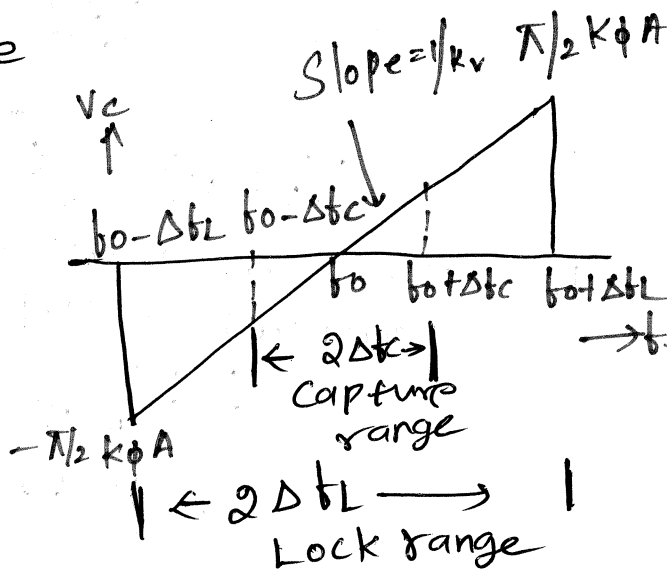 e
Slope=1/Kv π/2 KϕA
Vc
fo-ΔfL fo-Δfc
fo fo+Δfc fo+ΔfL
→f.
← 2Δfc→
Capture
range
-π/2 KϕA
← 2ΔfL →
Lock range